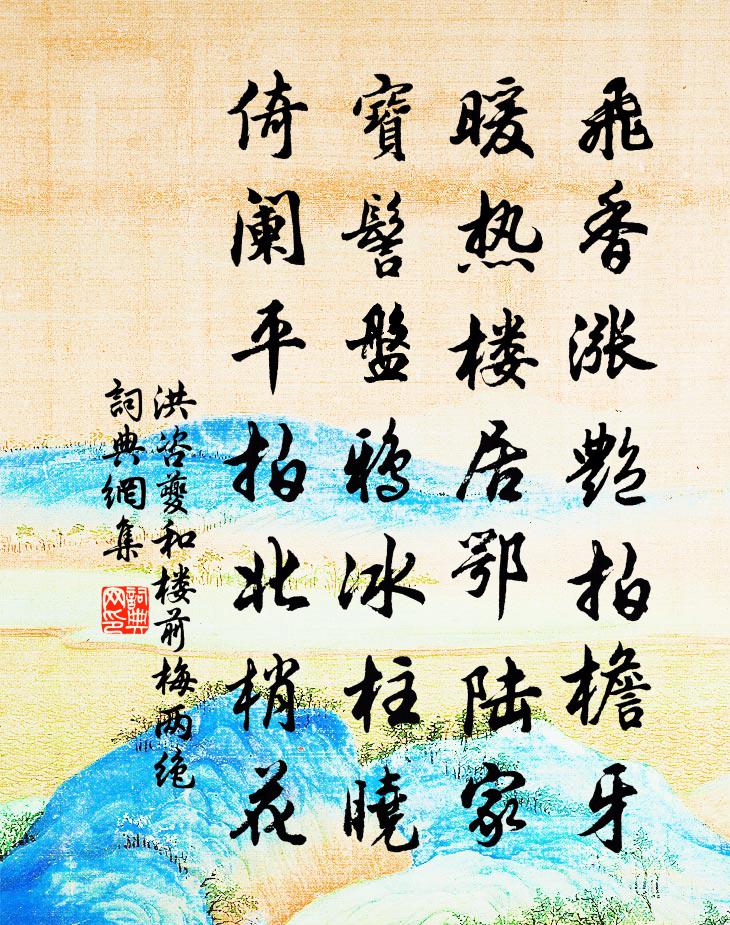 飛香漲艷拍檐牙
暖热楼居鄂陆家
寶髻盤鴉冰柱曉
倚阑平拍北梢花
洪咨夔和楼前梅两绝
詞典網集
詞典網印